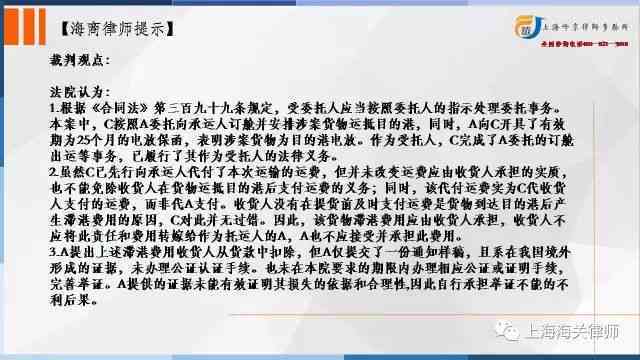 【海商律师提示】
上海听京律师事务所
裁判观点：
法院认为：
1.根据《合同法》第三百九十九条规定，受委托人应当按照委托人的指示处理委托事务。
本案中，C按照A委托向承运人订舱并安排涉案货物运抵目的港，同时，A向C开具了有效
期为25个月的电放保函，表明涉案货物为目的港电放。作为受托人，C完成了A委托的订舱
出运等事务，已履行了其作为受托人的法律义务。
2.虽然C已先行向承运人代付了本次运输的运费，但并未改变运费应由收货人承担的实质，
也不能免除收货人在货物运抵目的港后支付运费的义务；同时，该代付运费实为C代收货
人支付的运费，而非代A支付。收货人没有在提货前及时支付运费是货物到达目的港后产
生滞港费用的原因，C对此并无过错。因此，该货物滞港费用应由收货人承担，收货人不
应将此责任和费用转嫁给作为托运人的A，A也不应接受并承担此费用。
3.A提出上述滞港费用收货人从货款中扣除，但A仅提交了一份通知样稿，且系在我国境外
形成的证据，未办理公证认证手续。也未在本院要求的期限内办理相应公证或证明手续，
完善举证。A提供的证据未能有效证明其损失的依据和合理性,因此自行承担举证不能的不
利后果。
上海海关律师